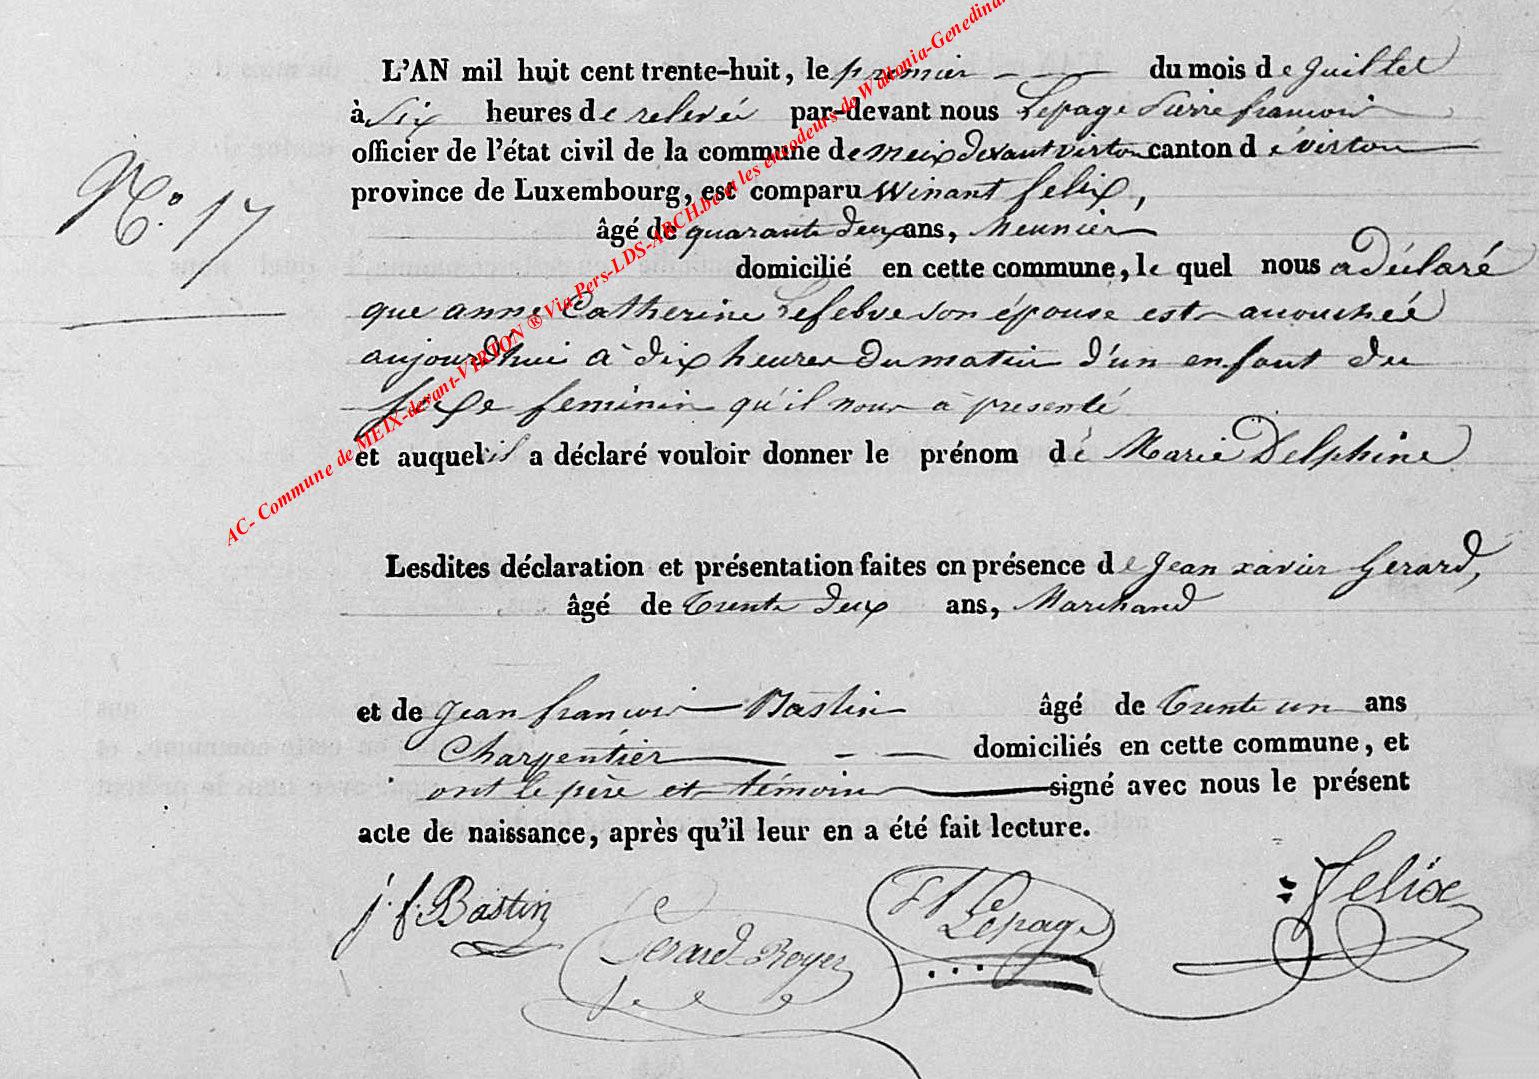 L'AN mil huit cent trente-huit, le premier du mois de Juillet
à Six heures de relevée par-devant nous Lepage Pierre françois
officier de l'état civil de la commune de Meix devant virton canton de virton
N.° 17
province de Luxembourg, est comparu Winant felix,
âgé de quarante deux ans, Meunier
domicilié en cette commune, le quel nous a déclaré
que anne Catherine Lefebve son épouse est accouchée
aujourd'hui à dix heures du matin d'un enfant du
sexe feminin qu'il nous a presenté
et auquel il a déclaré vouloir donner le prénom de Marie Delphine
AC- Commune de MEIX-devant-VIRTON ® Via Pers-LDS-ARCH.be et les encodeurs de Wallonia-Genedinar
Lesdites déclaration et présentation faites en présence de Jean xavier Gerard,
âgé de trente deux ans, Marchand
et de Jean françois Bastin âgé de trente un ans
Charpentier domiciliés en cette commune, et
ont le père et témoins signé avec nous le présent
acte de naissance, après qu'il leur en a été fait lecture.
j. f. Bastin
Gerard-Royer
Lepage
Felix